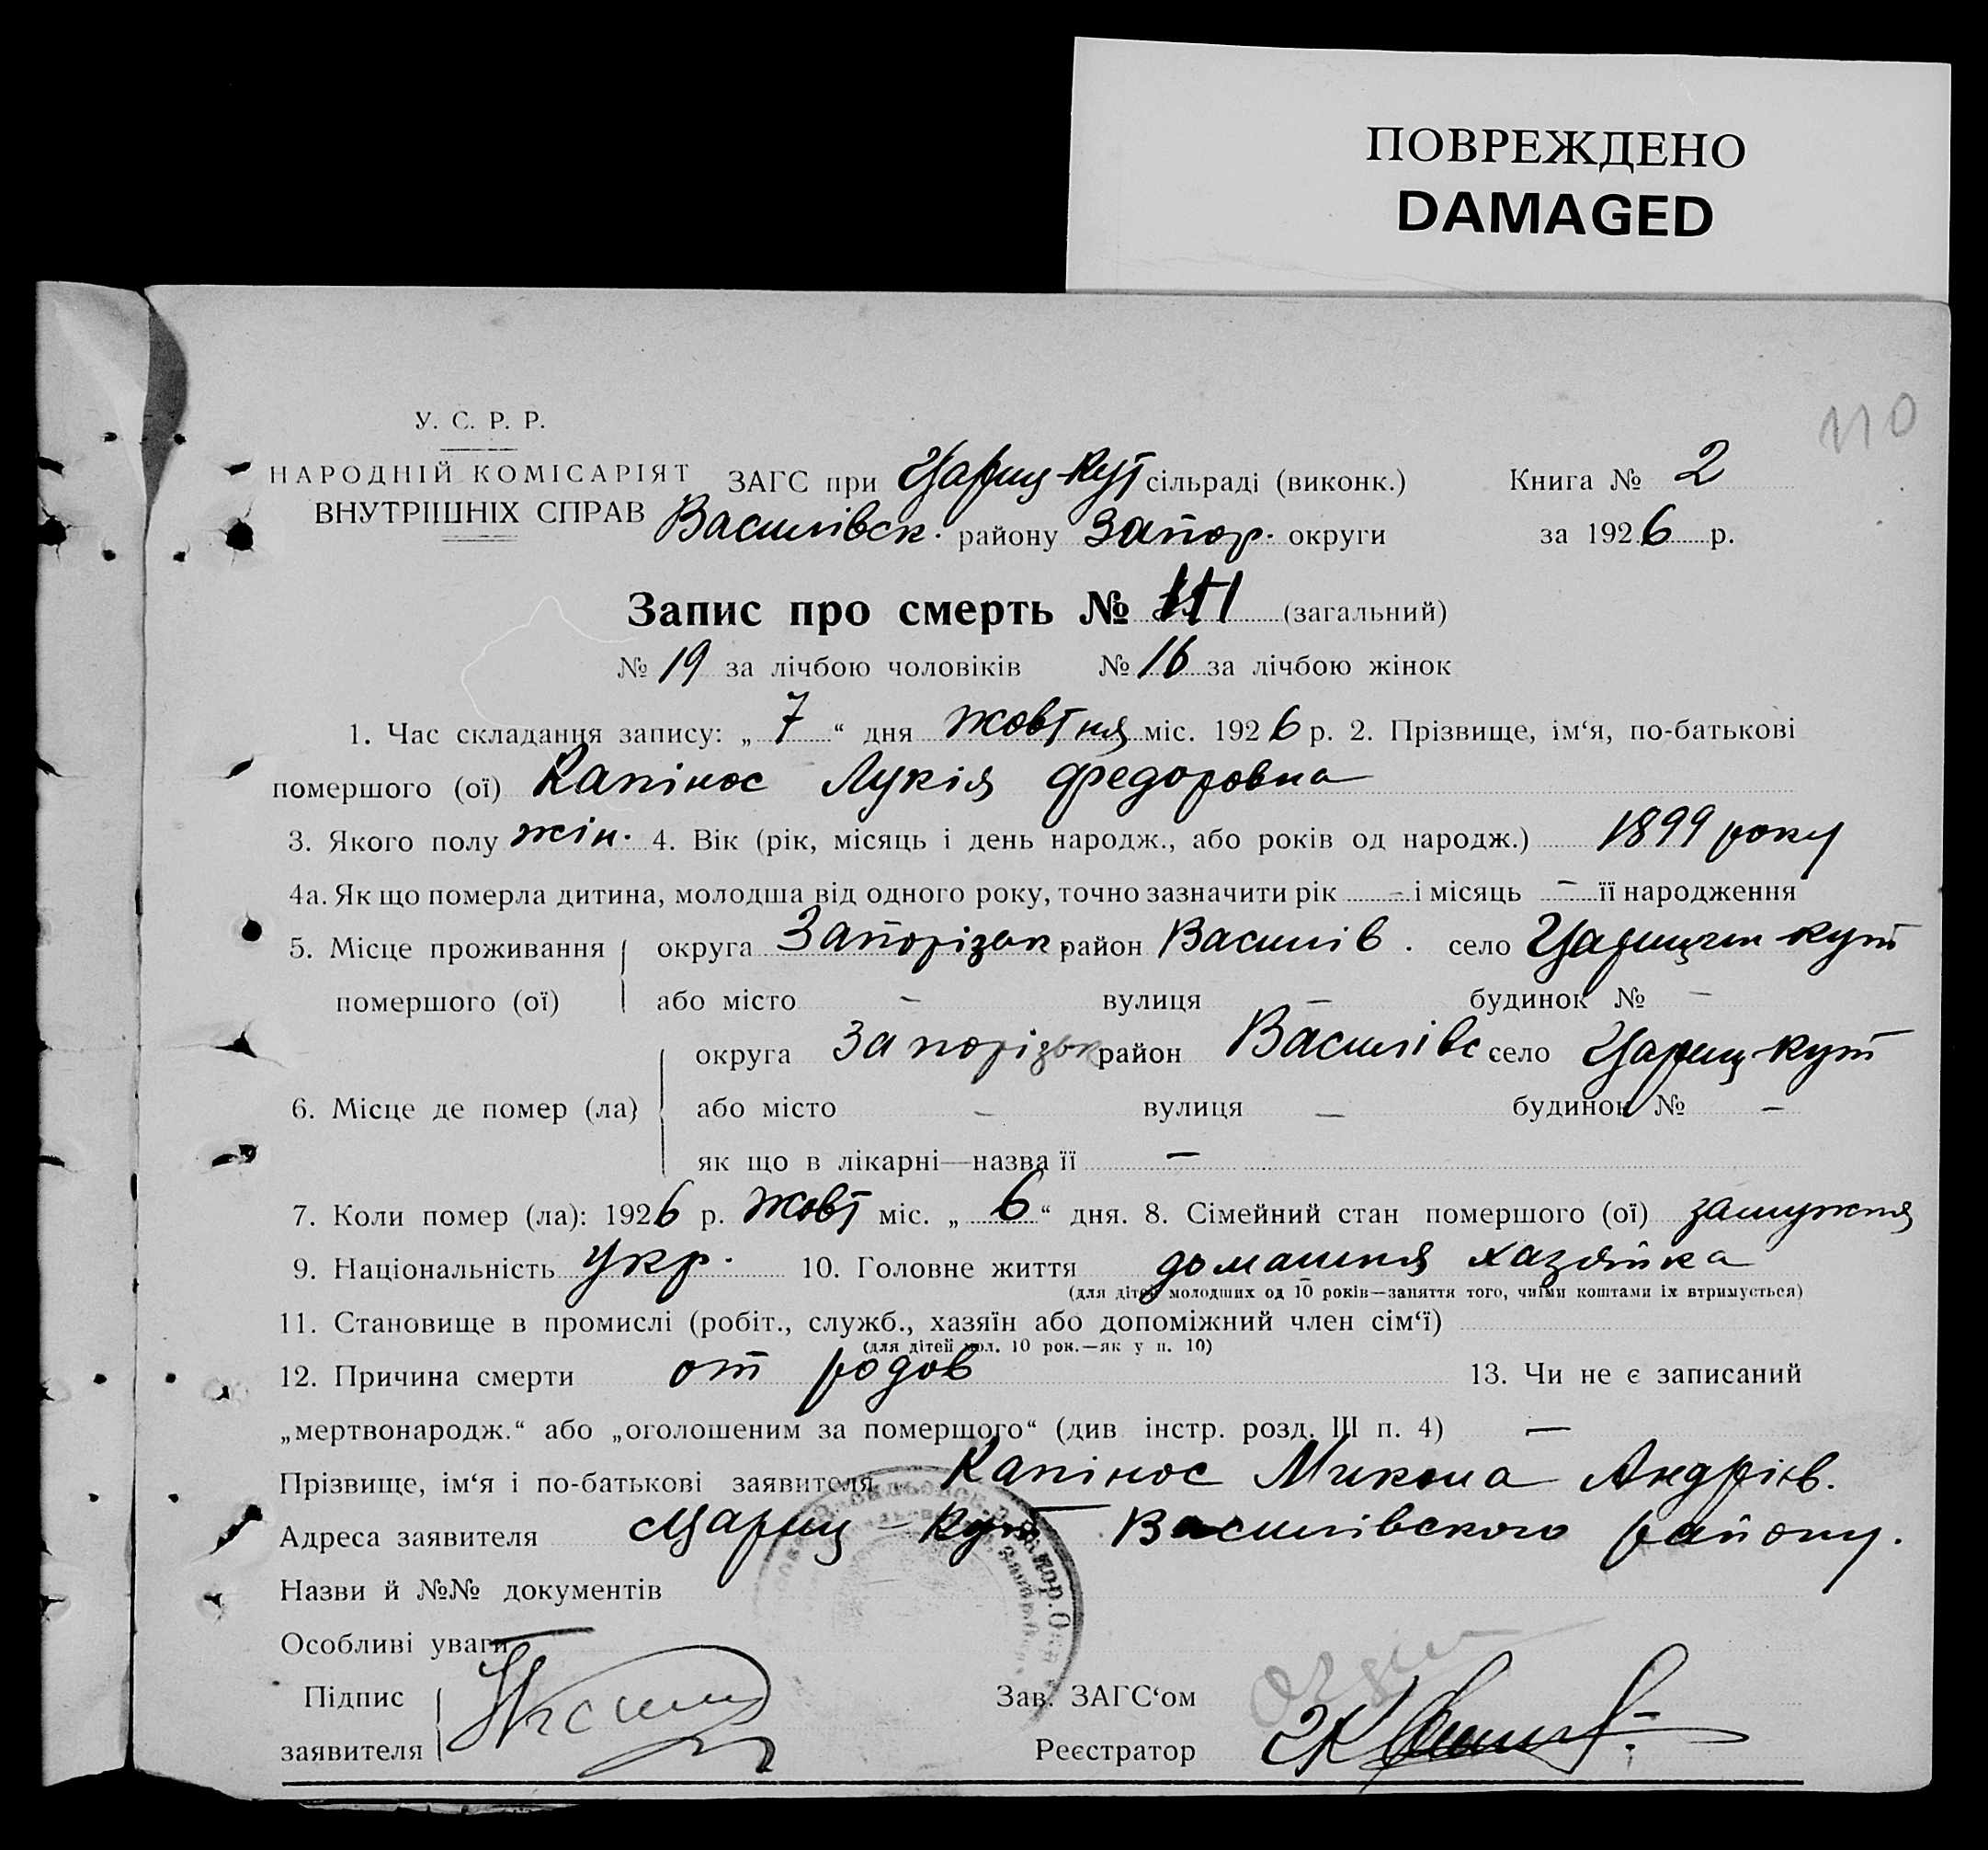 ПОВРЕЖДЕНО
DAMAGED
110
У. С. Р. Р.
НАРОДНІЙ КОМІСАРІЯТ ВНУТРІШНІХ СПРАВ
ЗАГС при Цариц-Кут сільраді (виконк.) Книга № 2
Василівськ. району Запор. округи за 1926 р.
Запис про смерть № (загальний)
№ 19 за лічбою чоловіків № 16 за лічбою жінок
1. Час складання запису: „7“ дня жовтня міс. 1926 р. 2. Прізвище, ім‘я, по-батькові
помершого (ої) Капінос Лукія Федоровна
3. Якого полу жін. 4. Вік (рік, місяць і день народж., або років од народж.) 1899 року
4а. Як що померла дитина, молодша від одного року, точно зазначити рік – і місяць – її народження
5. Місце проживання округа Запорізьк район Василів. село Царицин кут
помершого (ої) або місто – вулиця – будинок № –
округа Запорізьк район Василівс село Цариц-кут
6. Місце де помер (ла) або місто – вулиця – будинок № –
як що в лікарні—назва її –
7. Коли помер (ла): 1926 р. Жовт міс. „6“ дня. 8. Сімейний стан помершого (ої) замужня
9. Національність Укр. 10. Головне життя домашня хазяйка
(для дітей молодших од 10 років—заняття того, чиїми коштами їх втримується)
11. Становище в промислі (робіт., служб., хазяїн або допоміжний член сім‘ї)
(для дітей мол. 10 рок.—як у п. 10)
12. Причина смерти от родов 13. Чи не є записаний
„мертвонародж.“ або „оголошеним за помершого“ (див інстр. розд. III п. 4) —
Прізвище, ім‘я і по-батькові заявителя Капінос Микола Андріїв.
Адреса заявителя Цариц-Кут Василівского району.
Назви й №№ документів
Особливі уваги —
Підпис Зав. ЗАГС‘ом
заявителя Реєстратор